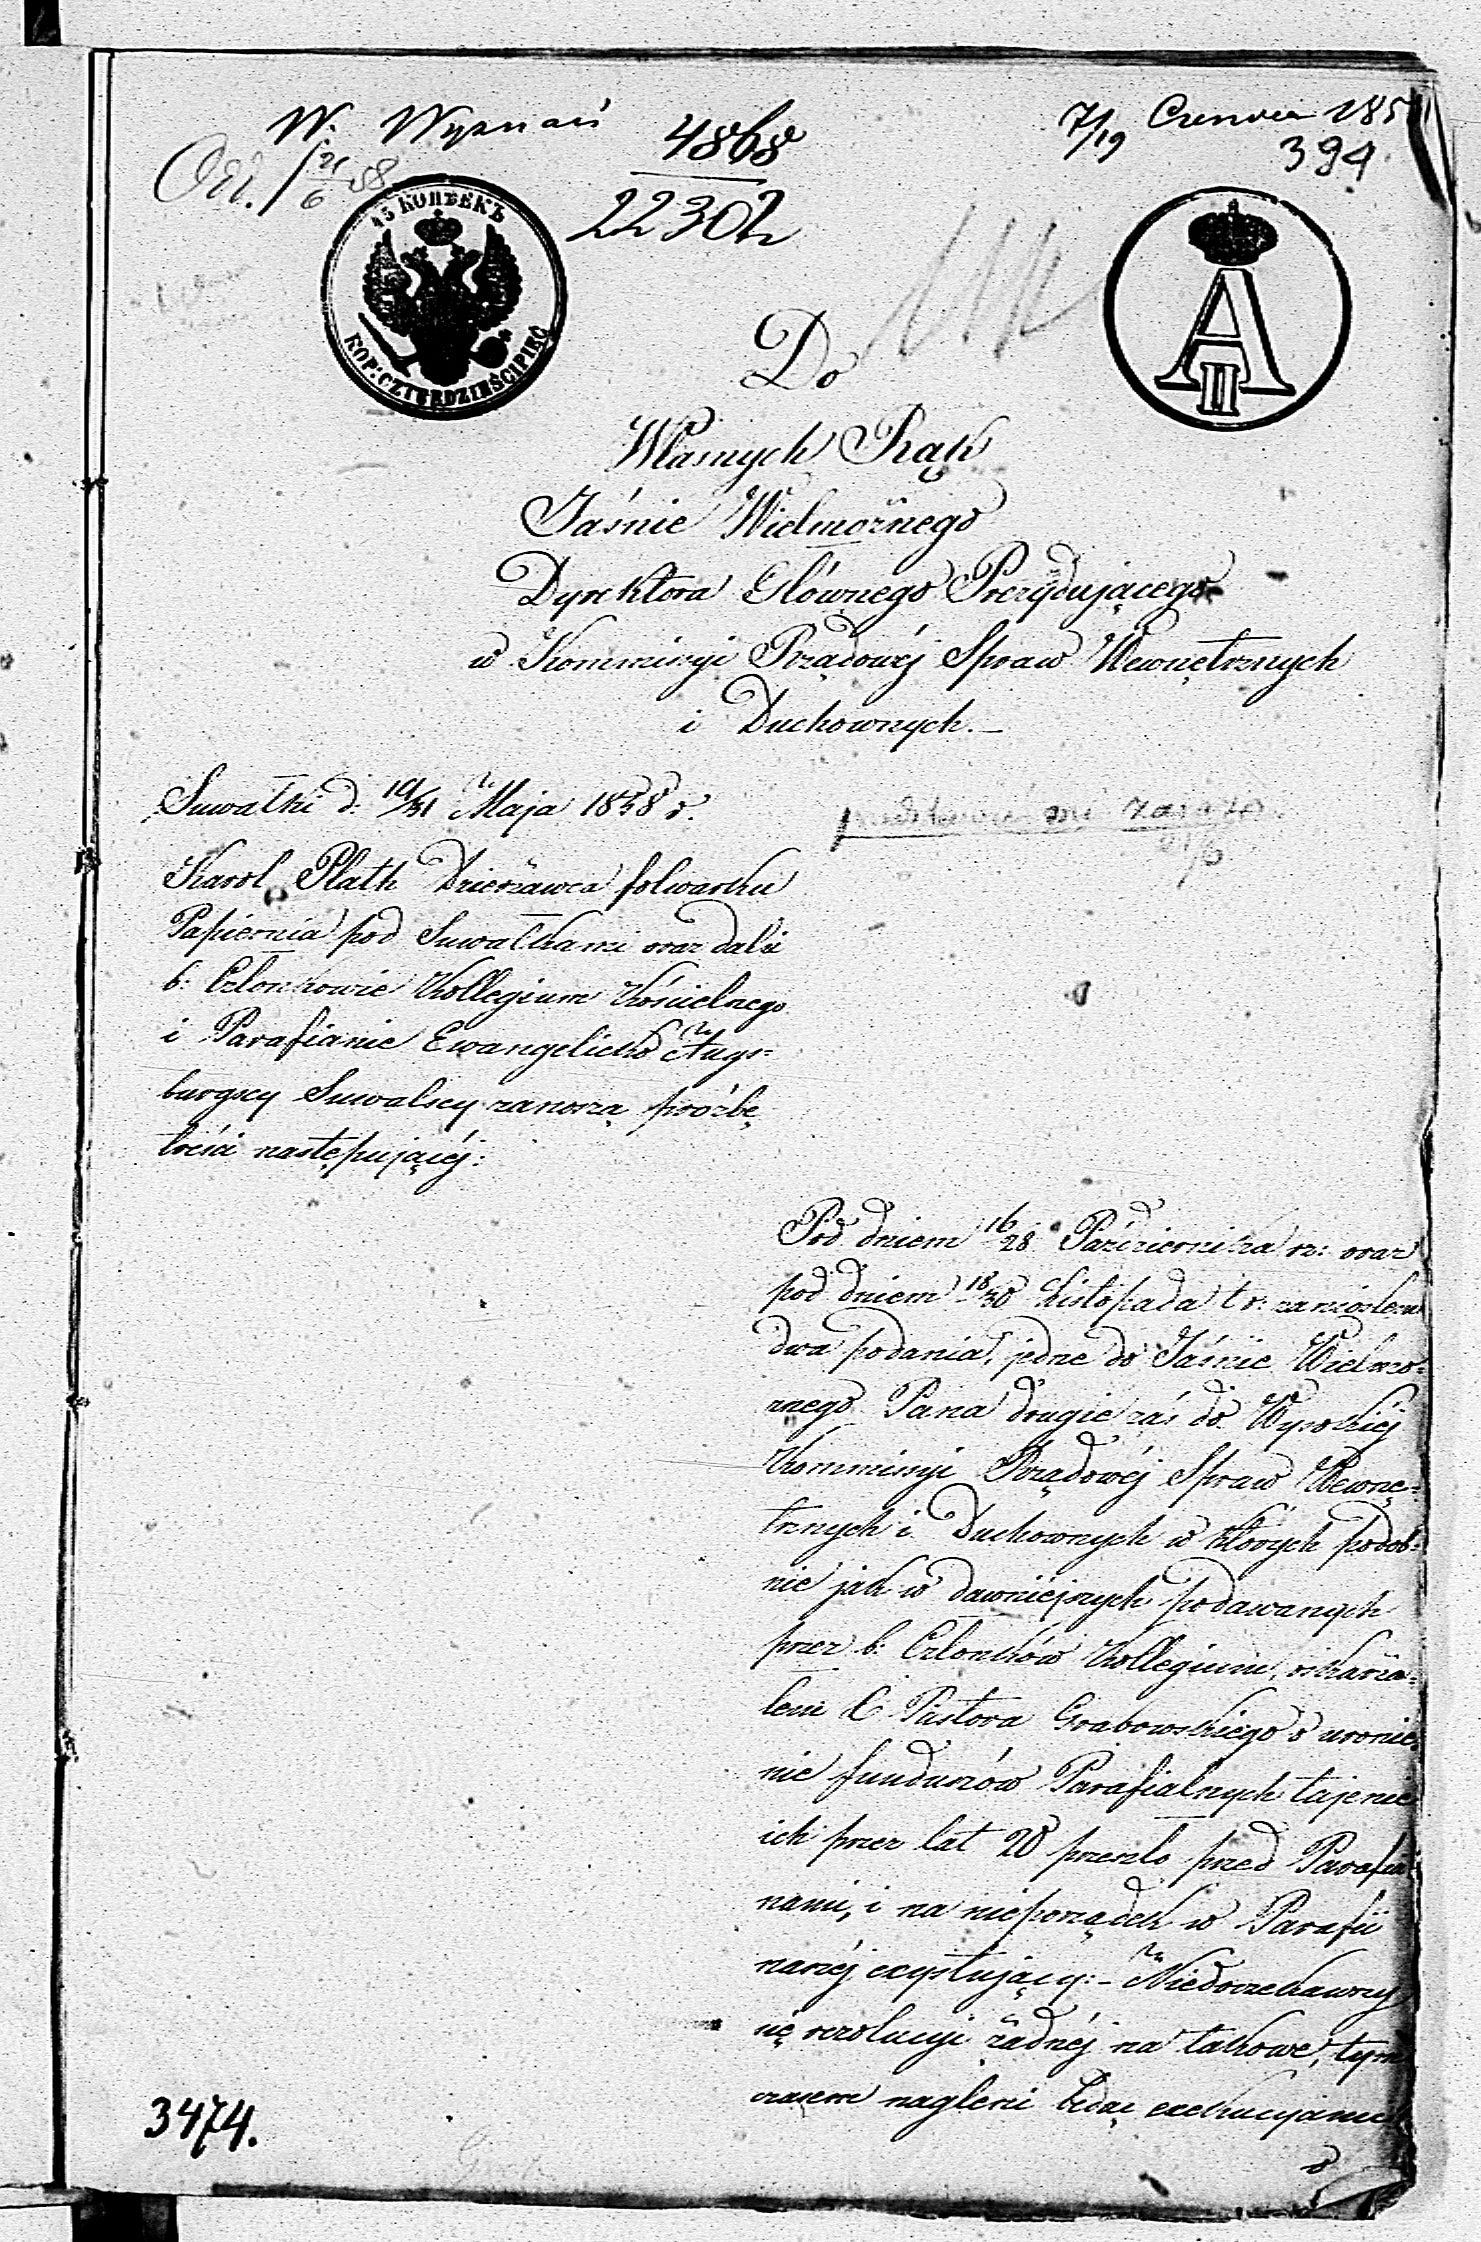 W. Wyznań
4868
22302
7/19 Czerwca 185
394
Od. 21/6 58
45 КОПѢЕКЪ
KOP: CZTERDZIEŚCI PIĘĆ
A II
Do
Własnych Rąk
Jaśnie Wielmożnego
Dyrektora Głównego Prezydującego
w Kommissyi Rządowéj Spraw Wewnętrznych
i Duchownych. _
Suwałki d. 19/31 Maja 1858 r.
Karol Plath Dzierżawca folwarku
Papiernia pod Suwałkami oraz dalsi
b: Członkowie Kollegium Kościelnego
i Parafianie Ewangelicko Augs=
burgscy Suwalscy zanoszą prośbę
treści następującéj:
Pod dniem 16/28 Października rz: oraz
pod dniem 18/30 Listopada t r: zaniosłem
dwa podania, jedne do Jaśnie Wielmo=
żnego Pana drugie zaś do Wysokiéj
Kommissyi Rządowéj Spraw Wewnę=
trznych i Duchownych w których podob=
nie jak w dawniejszych podawanych
przez b: Członków Kollegium, oskarża=
łem X Pastora Grabowskiego o uronie
nie funduszów Parafialnych tajenie
ich przez lat 20 przeszło przed Parafia
nami, i na nieporządek w Parafii
naszéj exystujący: - Niedoczekawszy
się rezolucyi żadnéj na takowe, tym
czasem nagleni będąc exekucyami
o
3474.